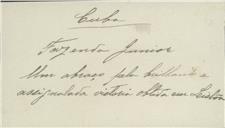 Cuba
Fazenda Junior
Um abraço pela brilhante e
assignalada victoria obtida em Lisboa